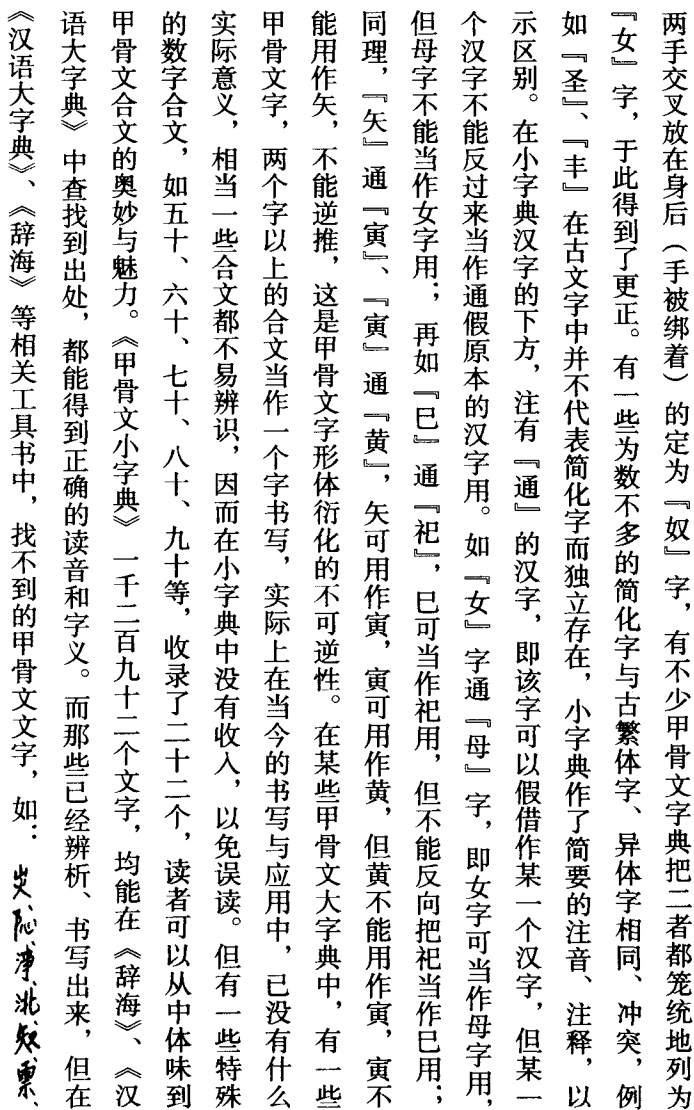 两手交叉放在身后（手被绑着）的定为『奴』字，有不少甲骨文字典把二者都笼统地列为
『女』字，于此得到了更正。有一些为数不多的简化字与古繁体字、异体字相同、冲突，例
如『圣』、『丰』在古文字中并不代表简化字而独立存在，小字典作了简要的注音、注释，以
示区别。在小字典汉字的下方，注有『通』的汉字，即该字可以假借作某一个汉字，但某一
个汉字不能反过来当作通假原本的汉字用。如『女』字通『母』字，即女字可当作母字用，
但母字不能当作女字用；再如『巳』通『祀』，巳可当作祀用，但不能反向把祀当作巳用；
同理，『矢』通『寅』、『寅』通『黄』，矢可用作寅，寅可用作黄，但黄不能用作寅，寅不
能用作矢，不能逆推，这是甲骨文字形体衍化的不可逆性。在某些甲骨文大字典中，有一些
甲骨文字，两个字以上的合文当作一个字书写，实际上在当今的书写与应用中，已没有什么
实际意义，相当一些合文都不易辨识，因而在小字典中没有收入，以免误读。但有一些特殊
的数字合文，如五十、六十、七十、八十、九十等，收录了二十二个，读者可以从中体味到
甲骨文合文的奥妙与魅力。《甲骨文小字典》一千二百九十二个文字，均能在《辞海》、《汉
语大字典》中查找到出处，都能得到正确的读音和字义。而那些已经辨析、书写出来，但在
《汉语大字典》、《辞海》等相关工具书中，找不到的甲骨文文字，如：